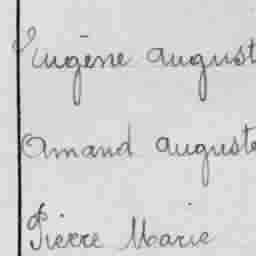 Eugène august
Amand auguste
Pierre Marie